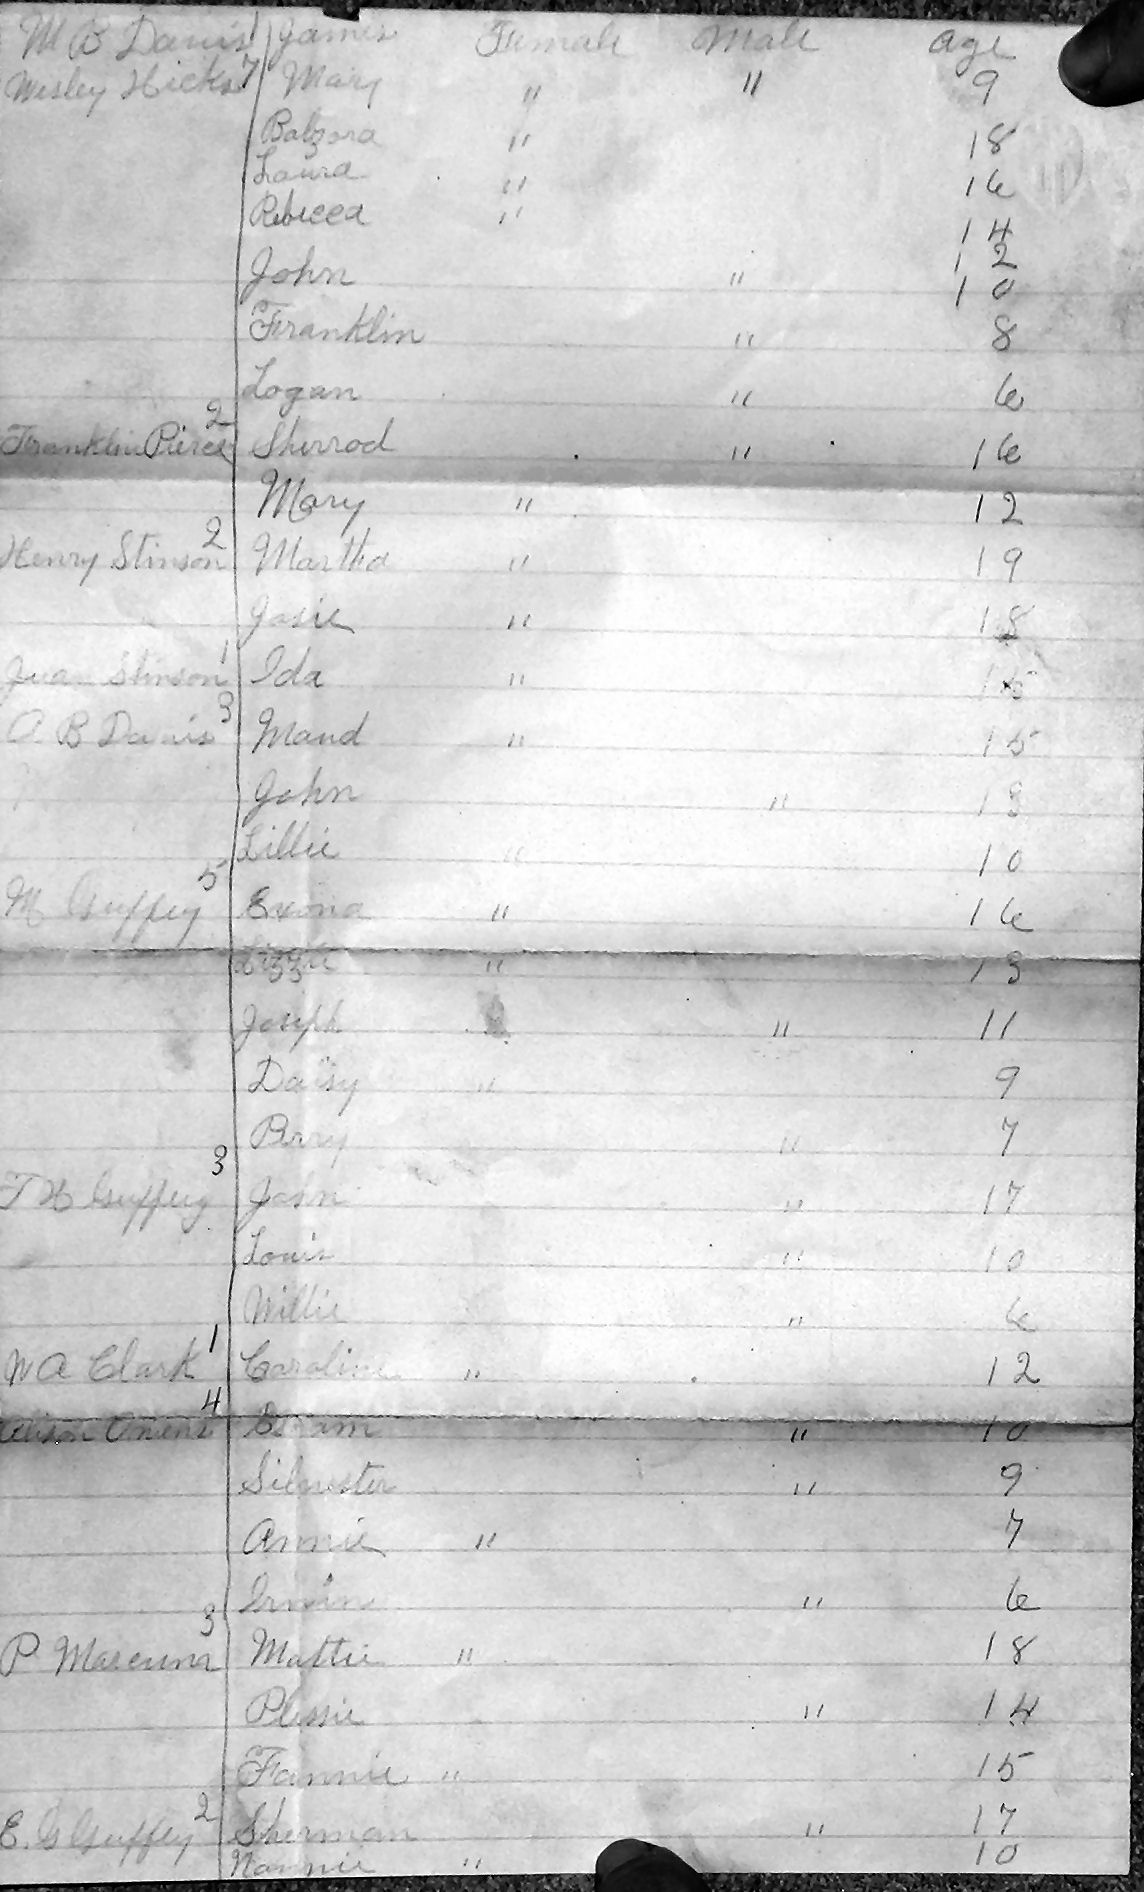 M B Davis 1 James Female Male age
Wesley Hicks 7 Mary " " 9
Balzora " 18
Laura " 16
Rebecca " 14
12
John " 10
Franklin " 8
Logan " 6
2
Franklin Pierce Sherrod " 16
Mary " 12
2
Henry Stinson Martha " 19
Josie " 18
1
Juan Stinson Ida " 15
3
A. B Davis Maud " 15
John " 13
Lillie " 10
5
M Guffey Exona " 16
Lizzie " 13
Joseph " 11
Daisy " 9
Perry " 7
3
T B Guffey John " 17
Louis " 10
Willie " 6
1
W A Clark Caroline " 12
4
Owens " 10
Silvester " 9
Annie " 7
Irvin " 6
3
P Mattie " 18
Plessie " 14
Fannie " 15
2
E. G Guffey Sherman " 17
Nannie " 10